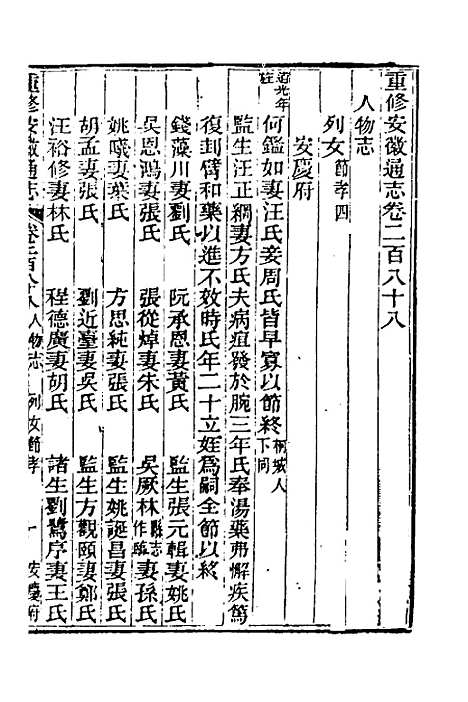 重修安徽通志卷二百八十八
人物志
列女節孝四
安慶府
道光年旌 何鑑如妻汪氏妾周氏皆早寡以節終桐城人下同
監生汪正綱妻方氏夫病疽發於腕三年氏奉湯藥弗懈疾篤
復刲臂和藥以進不效時氏年二十立姪爲嗣全節以終
錢藻川妻劉氏 阮承恩妻黃氏 監生張元輯妻姚氏
吳恩鴻妻張氏 張從焯妻朱氏 吳厥林縣志作臨妻孫氏
姚曦妻葉氏 方思純妻張氏 監生姚誕昌妻張氏
胡孟妻張氏 劉近臺妻吳氏 監生方觀頤妻鄭氏
汪裕修妻林氏 程德廣妻胡氏 諸生劉鷺序妻王氏
重修安徽通志 卷二百八十八 人物志 列女節孝 一 安慶府